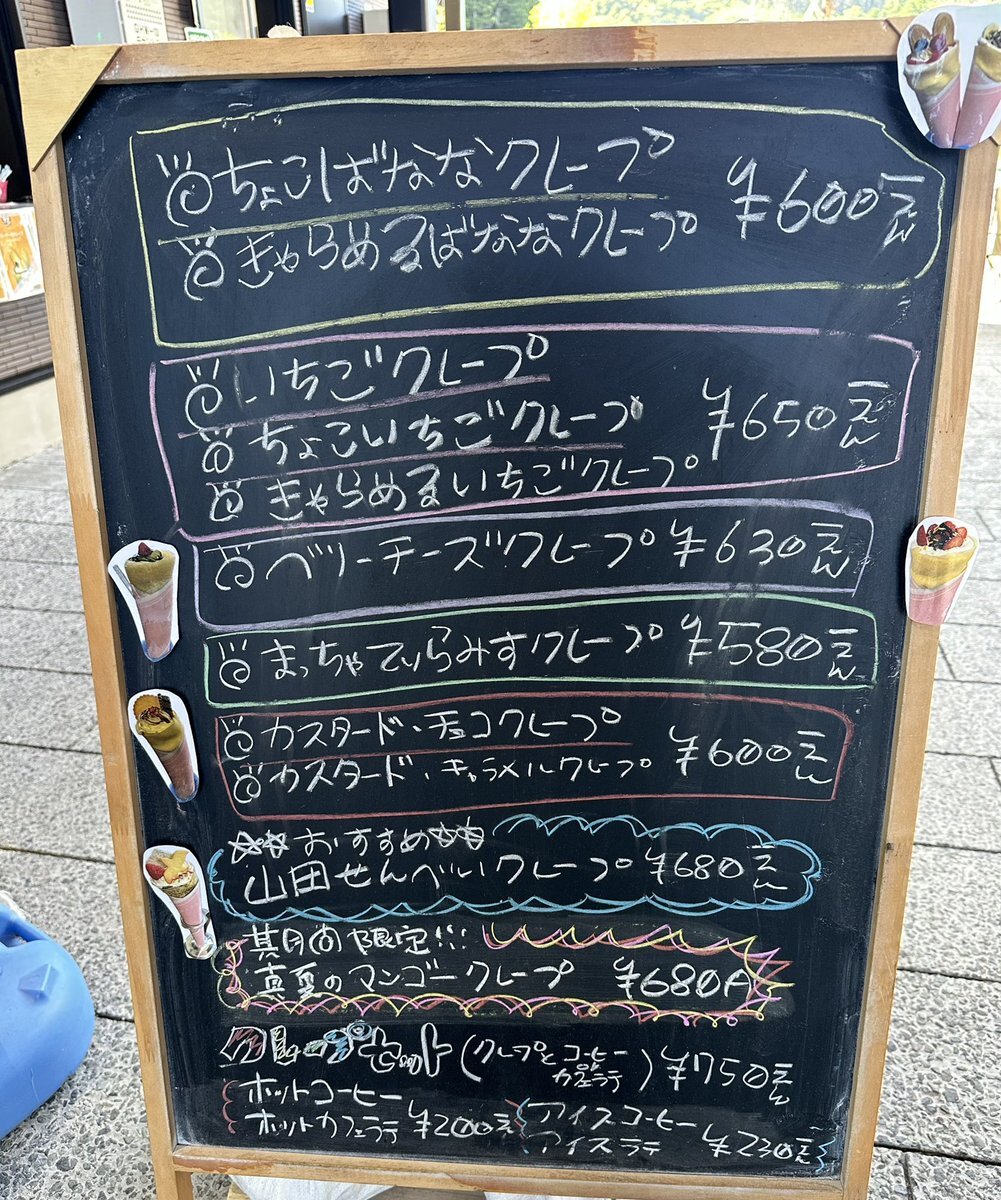 ちょこばななクレープ
きゃらめるばななクレープ ¥600えん
いちごクレープ
ちょこいちごクレープ ¥650えん
きゃらめるいちごクレープ
ベリーチーズクレープ ¥630えん
まっちゃてぃらみすクレープ ¥580えん
カスタード・チョコクレープ
カスタード・キャラメルクレープ ¥600えん
☆☆おすすめ☆☆
山田せんべいクレープ ¥680えん
期間限定!!!
真夏のマンゴークレープ ¥680円
クレープせット(クレープとコーヒー or カフェラテ) ¥750えん
ホットコーヒー
ホットカフェラテ ¥200えん
アイスコーヒー
アイスラテ ¥230えん